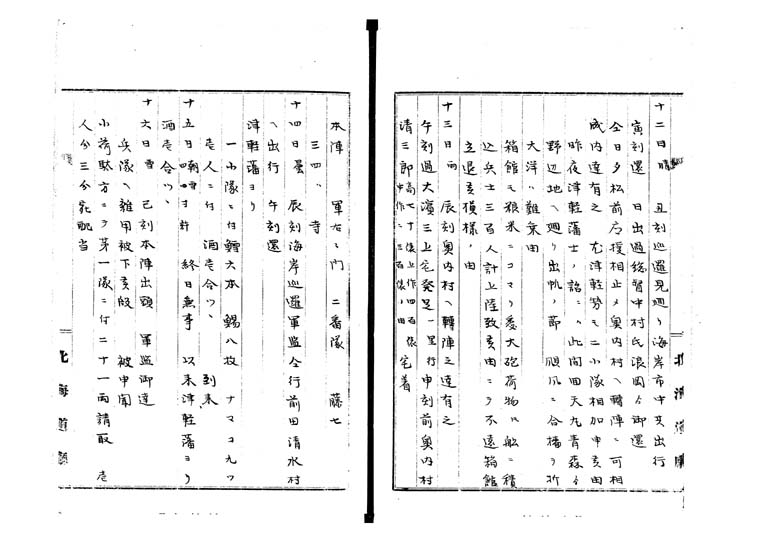 十二日晴 丑刻巡邏見廻リ海岸市中共出行
寅刻還 日出過総督中村氏浪岡ゟ御還
今日夕松前応援相止メ奥内村ヘ轉陣ニ可相
成内達有之 尤津軽勢モ二小隊相加申哉由
昨夜津軽藩士ノ話ニ 此間回天丸青森ゟ
野辺地ヘ廻リ出帆ノ節 颶風ニ合檣ヲ折
大洋ニ難棄由
箱館モ粮米ニコマリ愛大砲荷物ハ船ニ積
込兵士三百人計上陸致哉由ニテ不遠箱館
立退哉模様ノ由
十三日雨 辰刻奥内村ヘ轉陣之達有之
午刻過大濱三上宅発足一里行申刻前奥内村
清三郎 高七十俵上作四百俵 中作二三百俵ノ由 宅着
本陣 軍右ヱ門 二番隊 藤七
三四〃 寺
十四日曇 辰刻海岸巡邏軍監仝行前田清水村
ヘ出行 午刻還
津軽藩ヨリ
一小隊ニ付鱈六本 鯣八枚 ナマコ九ツ
壱人ニ付 酒壱合ツヽ 到来
十五日 終日無事 以来津軽藩ヨリ
酒壱合ツヽ
十六日雪 己刻本陣出頭 軍監御達
兵隊ヘ雑用被下哉段 被申聞
小荷駄方ニテ第一隊ニ付二十一両請取 壱
人分三分宛配当